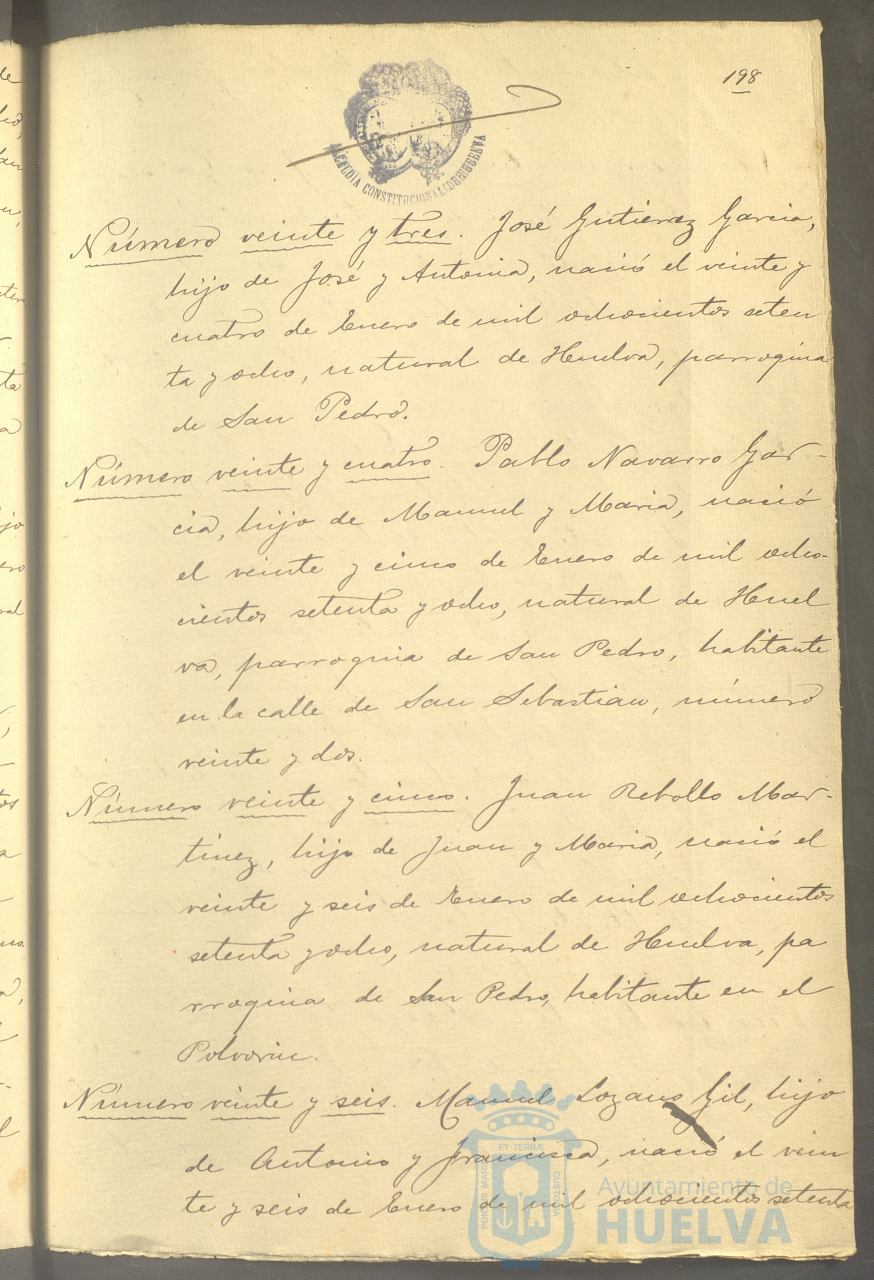 198
ALCALDÍA CONSTITUCIONAL DE HUELVA
Número veinte y tres. José Gutierrez Garcia,
hijo de José y Antonia, nació el veinte y
cuatro de Enero de mil ochocientos seten
ta y ocho, natural de Huelva, parroquia
de San Pedro.
Número veinte y cuatro. Pablo Navarro Gar-
cia, hijo de Manuel y Maria, nació
el veinte y cinco de Enero de mil ocho-
cientos setenta y ocho, natural de Huel
va, parroquia de San Pedro, habitante
en la calle de San Sebastian, número
veinte y dos.
Número veinte y cinco. Juan Rebollo Mar-
tínez, hijo de Juan y Maria, nació el
veinte y seis de Enero de mil ochocientos
setenta y ocho, natural de Huelva, pa
rroquia de San Pedro, habitante en el
Polvorin.
Número veinte y seis. Manuel Lozano Gil, hijo
de Antonio y Francisca, nació el vein
te y seis de Enero de mil ochocientos setenta
PORTUS MARIS ET TERRÆ CUSTODIA
Ayuntamiento de
HUELVA